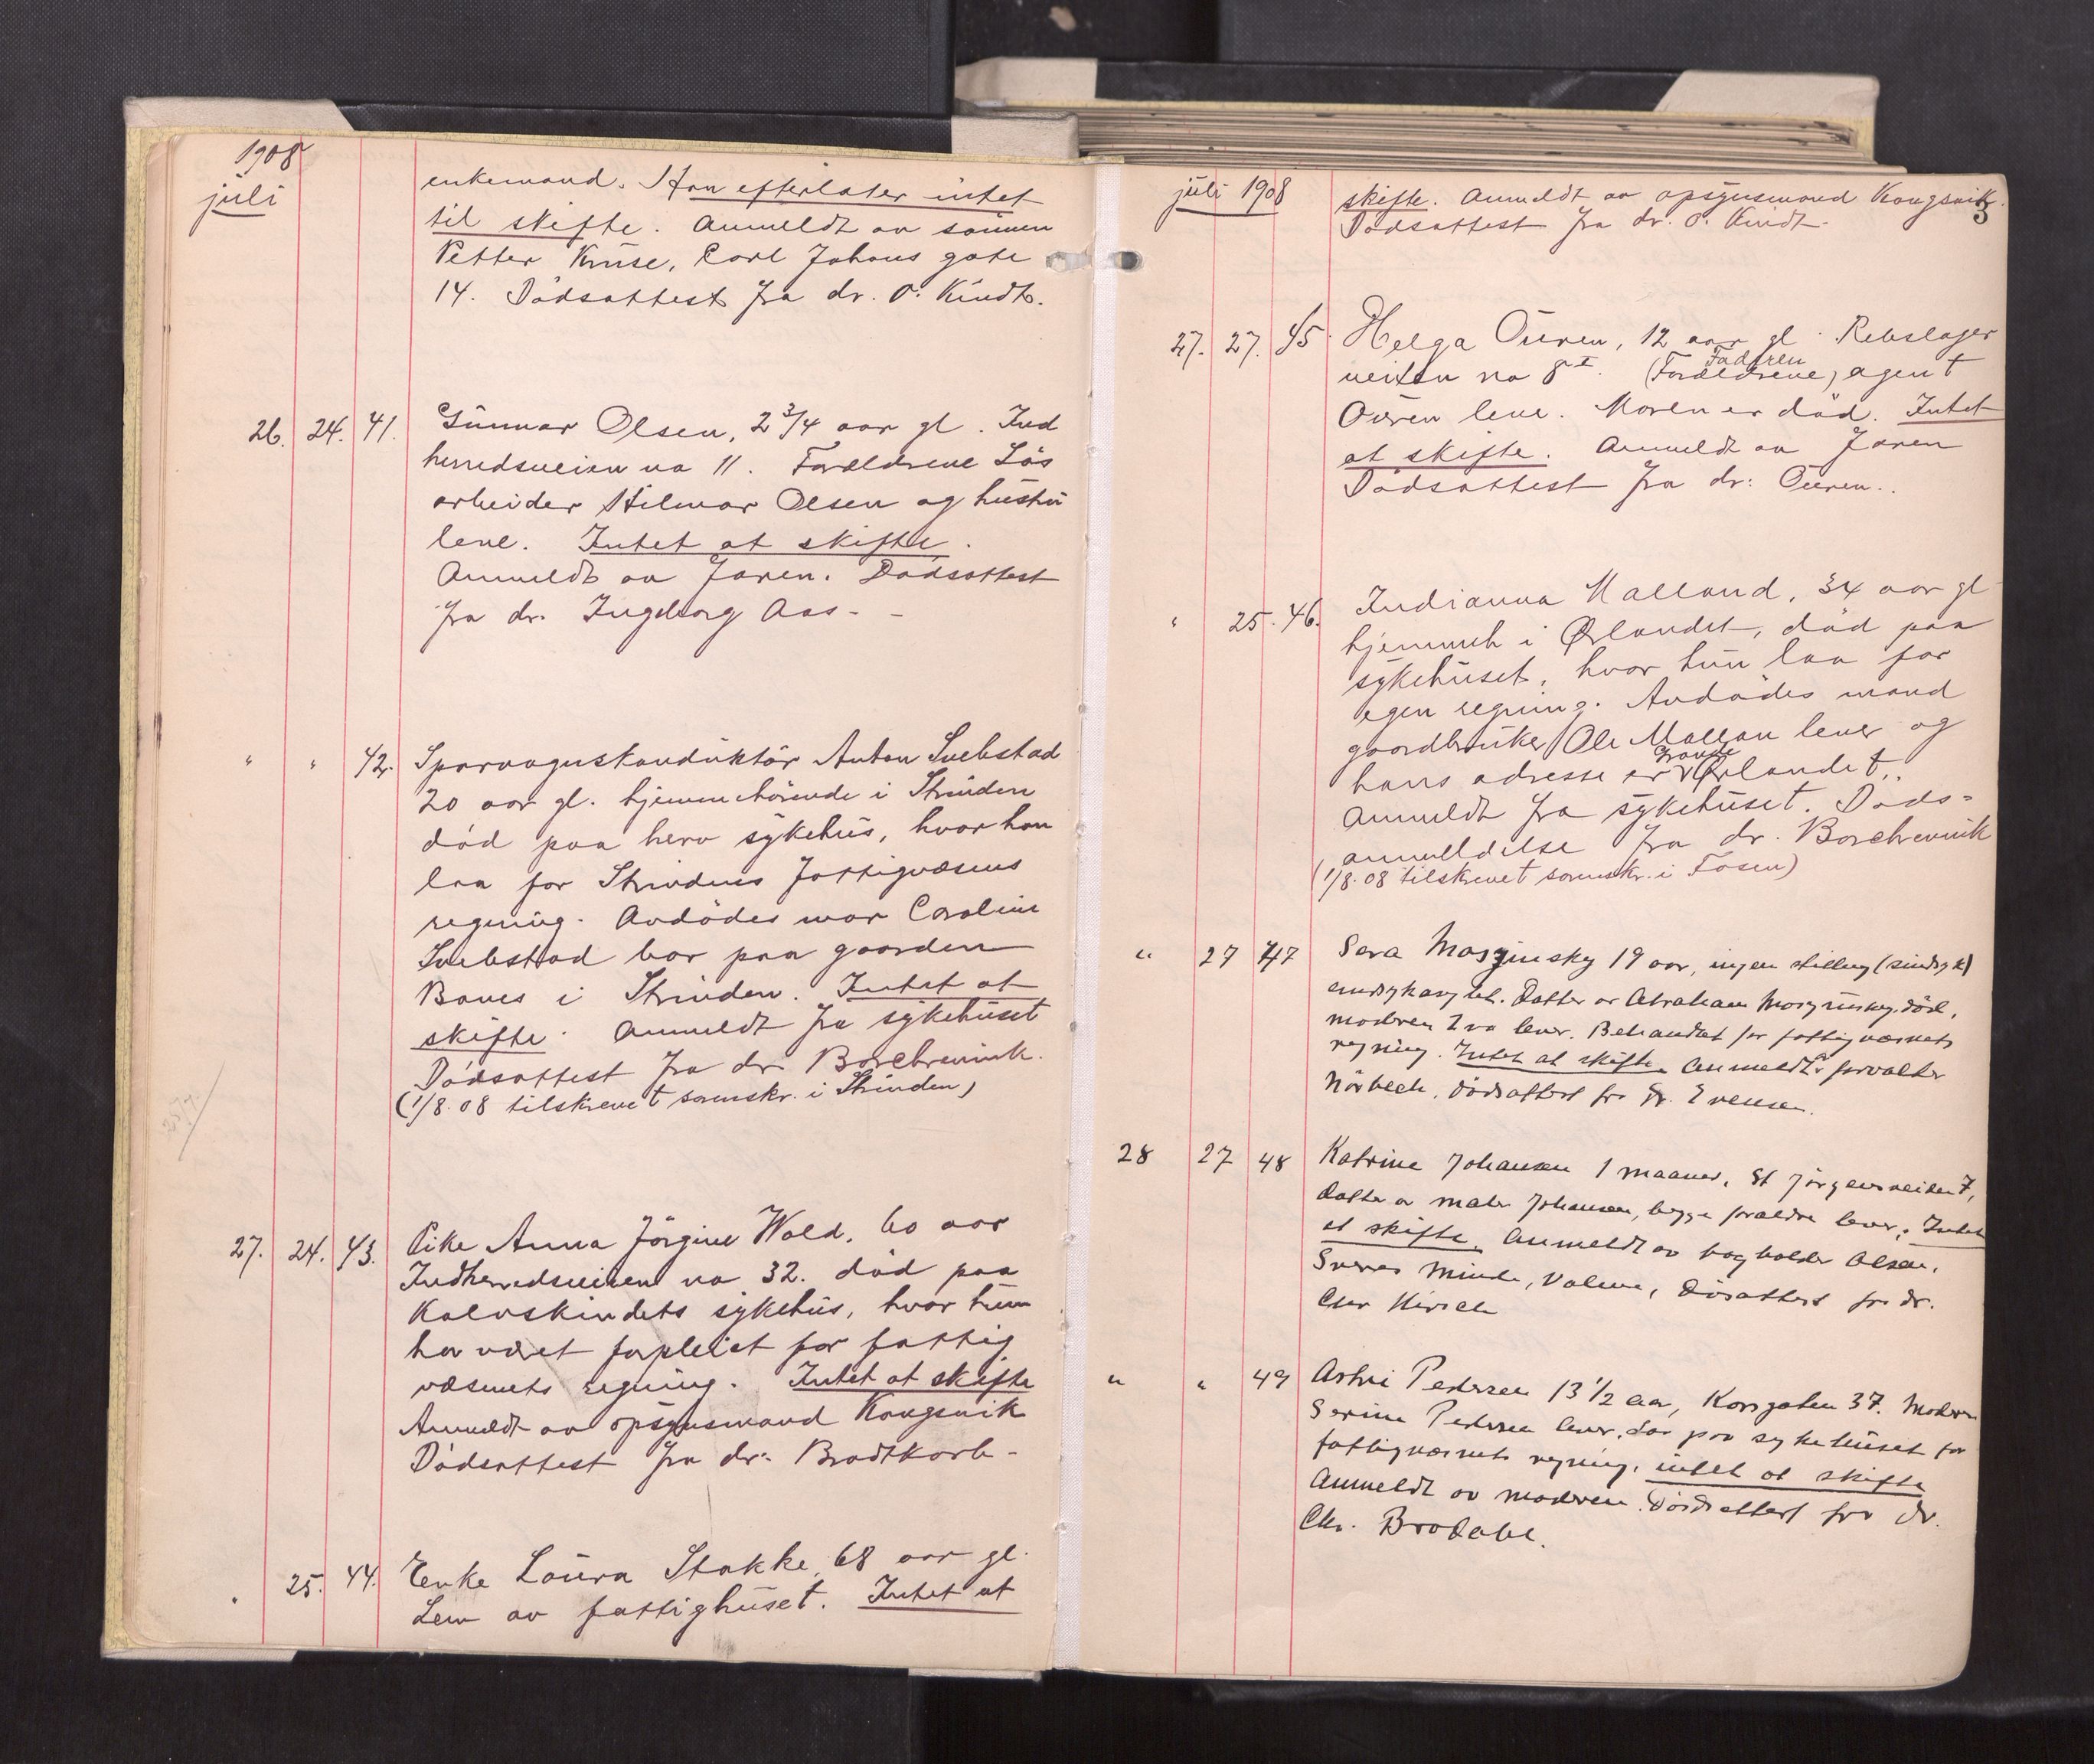 1908
juli
enkemand. Han efterlater intet
til skifte. Anmeldt av sönnen
Petter Kruse, Carl Johans gate
14. Dödsattest fra dr. O. Kindt.
26. 24. 41. Gunnar Olsen, 2 3/4 aar gl. Ind
herredsveien no 11. Forældrene Lös
arbeider Hilmar Olsen og hustru
leve. Intet at skifte.
Anmeldt av Faren. Dödsattest
fra dr. Ingeborg Aas.
" " 42. Sporvognskonduktör Anton Svebstad
20 aar gl. hjemmehörende i Strinden
död paa herv sykehus, hvor han
laa for Strindens Fattigvæsens
regning. Avdödes mor Caroline
Svebstad bor paa gaarden
Banes i Strinden. Intet at
skifte. Anmeldt fra sykehuset
Dödsattest fra dr. Borchrevink.
(1/8.08 tilskrevet sorenskr. i Strinden)
27. 24. 43. Pike Anna Jörgine Wold, 60 aar
Indherredsveien no 32. död paa
Kalvskindets sykehus, hvor hun
har været forpleiet for fattig
væsenets regning. Intet at skifte
Anmeldt av opsynsmand Kongsvik
Dödsattest fra dr. Brodtkorb
" 25. 44. Enke Laura Stokke, 68 aar gl.
Lem av fattighuset. Intet at
juli 1908
3
skifte. Anmeldt av opsynsmand Kongsvik.
Dödsattest fra dr. O. Kindt.
27. 27. 45. Helga Ouren, 12 aar gl. Rebslager
veiten no 8 I. (Forældrene) Faderen agent
Ouren leve. Moren er död. Intet
at skifte. Anmeldt av Faren
Dödsattest fra dr: Ouren.
" 25. 46. Indianna Malland, 34 aar gl
hjemmeh i Ørlandet, död paa
sykehuset, hvor hun laa for
egen regning. Avdödes mand
gaardbruker Ole Mallan lever og
hans adresse er Grande Ørlandet.
Anmeldt fra sykehuset. Döds-
anmeldelse fra dr. Borchrevink
(1/8.08 tilskrevet sorenskr. i Fosen)
" 27 47 Sara Moszinsky 19 aar, ingen stilling (sindsyk)
sindsykasylet. Datter av Abraham Moszinsky, död,
moderen Eva lever. Behandlet for fattigvæsenets
regning. Intet at skifte. Anmeldt av forvalter
Nörbech. Dödsattest fra Dr. Evensen.
28 27 48 Katrine Johansen 1 maaned, St Jörgensveiten 7,
datter av maler Johansen, begge forældre lever. Intet
at skifte. Anmeldt av bogholder Olsen,
Sverres Minde, Valene, Dödsattest fra dr.
Chr Hirsch
" " 49 Astri Pedersen 13 1/2 aar, Korsgaten 37. Moderen
Serine Pedersen lever. Laa paa sykehuset for
fattigvæsenets regning. intet at skifte
Anmeldt av moderen. Dödsattest fra dr.
Chr. Brodahl.